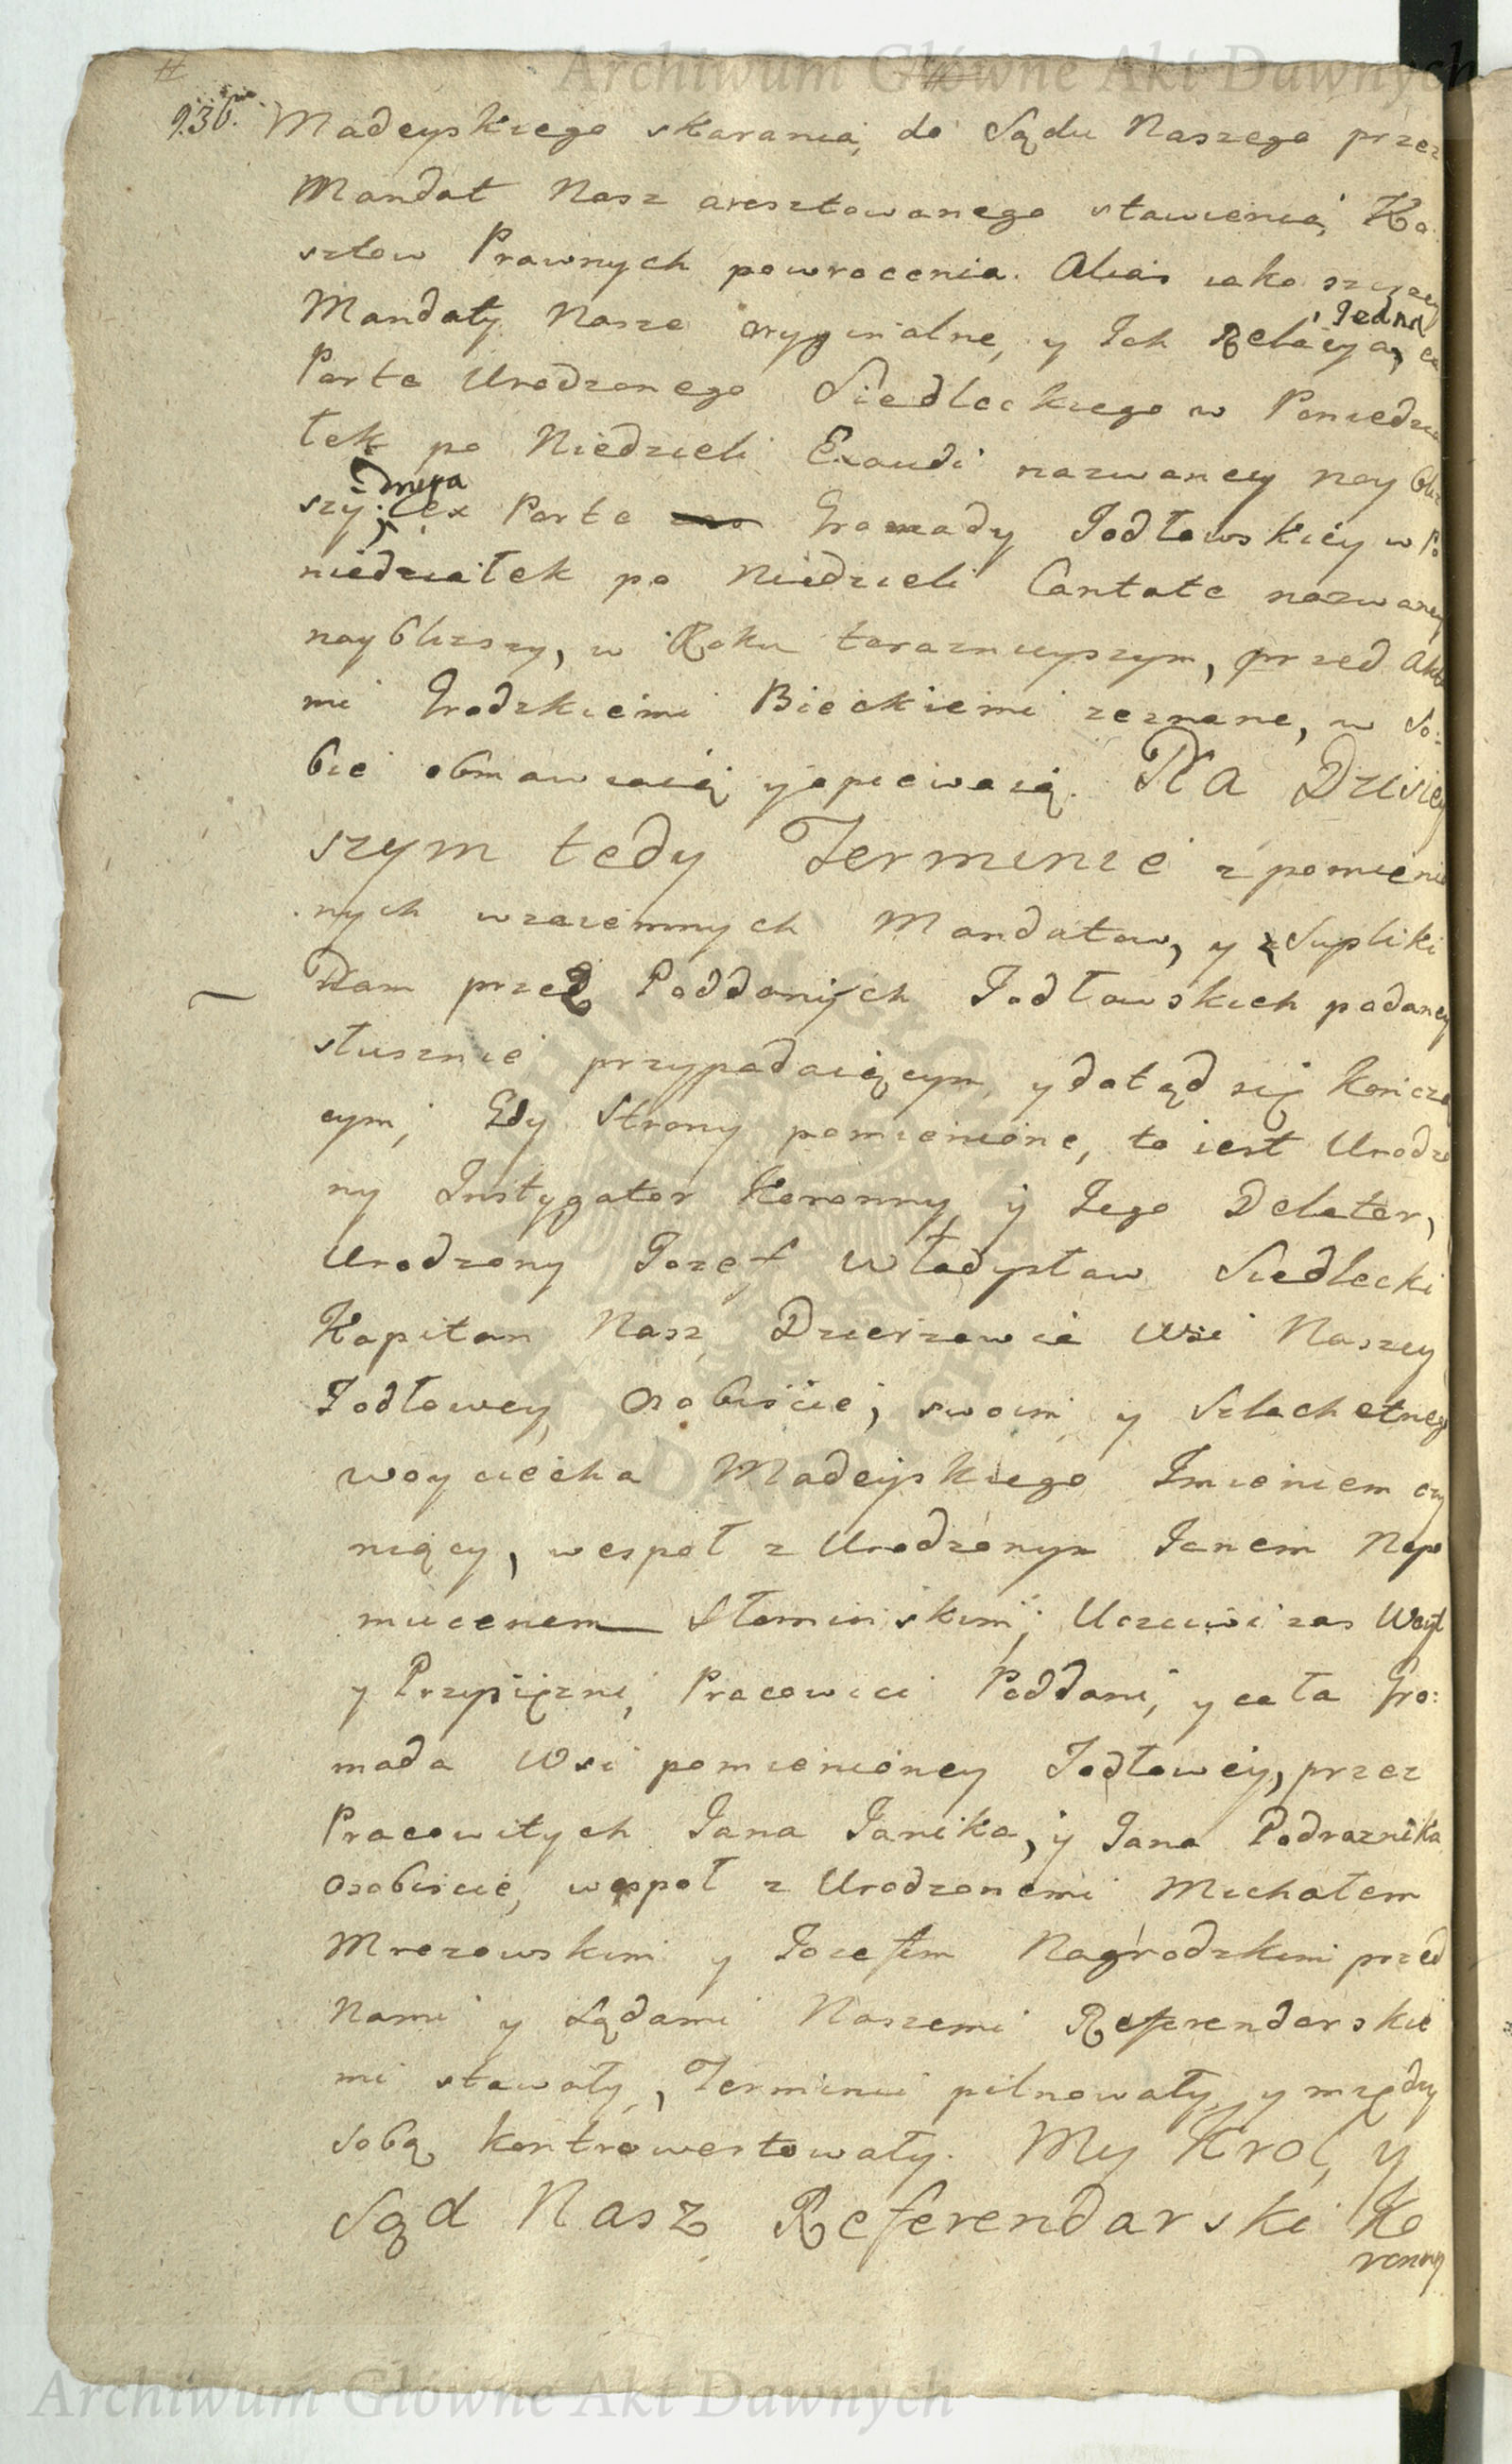 Archiwum Główne Akt Dawnych
936.
Madeyskiego skarania, do Sądu Naszego przez
Mandat Nasz aresztowanego stawienia, Ko
sztow Prawnych powrocenia. Alias iako szyrzey
Mandaty Nasze oryginalne, y Ich Relacya, Jedna ex
Parte Urodzonego Siedleckiego w Poniedzia
łek po Niedzieli Exaudi nazwaney naybliż
szy; Druga ex Parte Gromady Jodłowskiey w Po
niedziałek po Niedzieli Cantate nazwaney
naybliższy, w Roku teraznieyszym, przed Akta
mi Grodzkiemi Bieckiemi zeznane, w So:
bie obmawiaią y opiewaią. Na Dzisiey
szym tedy Terminie z pomienio
nych wzaiemnych Mandatow, y z Supliki
Nam przez Poddanych Jodłowskich podaney
słusznie przypadaiącym, y dotąd się kończą
cym, Gdy Strony pomienione, to iest Urodzo
ny Instygator Koronny, y Jego Delator,
Urodzony Jozef Władysław Siedlecki
Kapitan Nasz, Dzierzawca Wsi Naszey
Jodłowey, Osobiście, swoim, y Szlachetnego
Woyciecha Madeyskiego Imieniem czy
niący, wespoł z Urodzonym Janem Nepo
mucenem Słomińskim; Uczciwi zas Woyt
y Przysiężni, Pracowici Poddani, y cała Gro:
mada Wsi pomienioney Jodłowey, przez
Pracowitych Jana Janika, y Jana Podraznika
Osobiscie, wespoł z Urodzonemi Michałem
Mrozowskim y Jozefem Nagrodzkim przed
Nami y Sądami Naszemi Referendarskie
mi stawały, Terminu pilnowały, y między
sobą kontrowertowały. My Krol, y
Sąd Nasz Referendarski Ko
ronny
Archiwum Główne Akt Dawnych